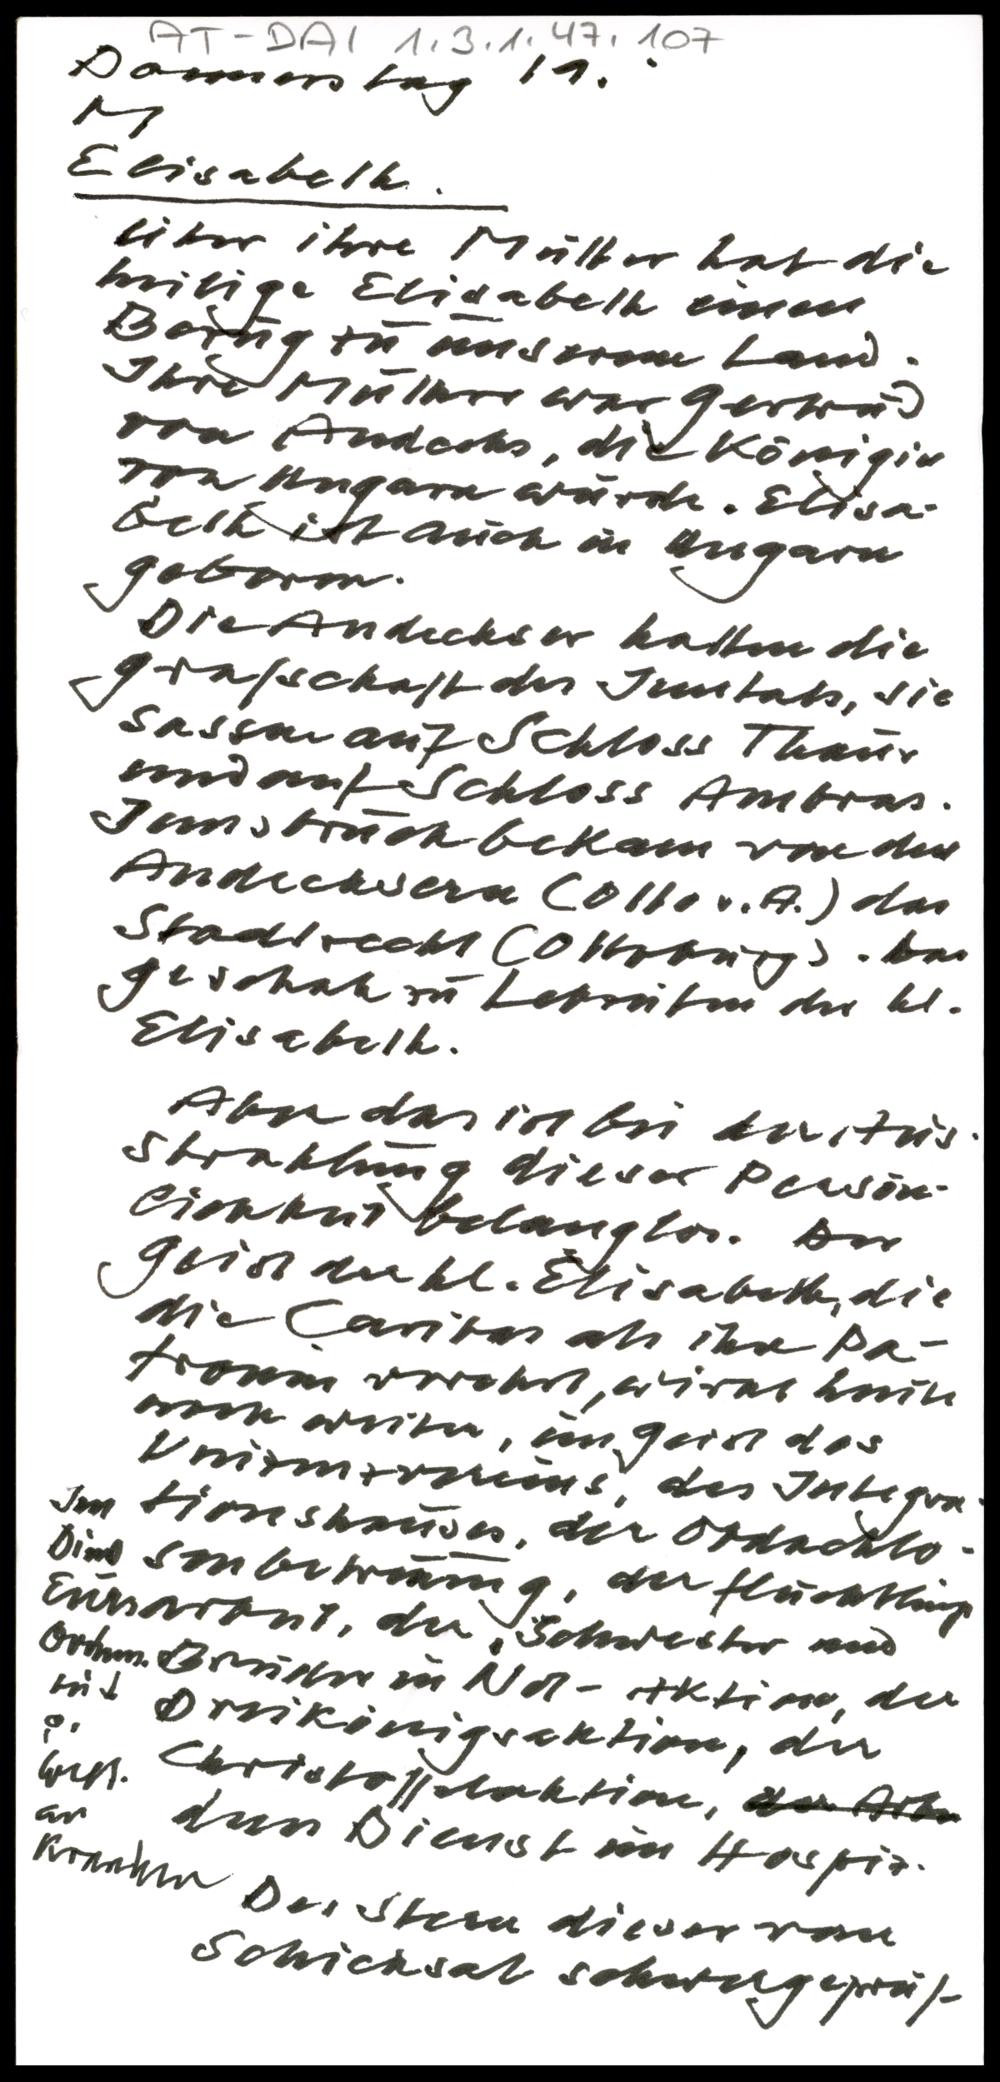 AT-DAI 1.3.1.47.107
Donnerstag 19.
M
Elisabeth.
Über ihre Mutter hat die
heilige Elisabeth einen
Bezug zu unserem Land.
Ihre Mutter war Gertrud
von Andechs, die Königin
von Ungarn wurde. Elisa-
beth ist auch in Ungarn
geboren.
Die Andechser hatten die
Grafschaft des Inntals, sie
sassen auf Schloss Thaur
und auf Schloss Ambras.
Innsbruck bekam von den
Andechsern (Otto v. A.) das
Stadtrecht (Ottoburg). Das
geschah zu Lebzeiten der hl.
Elisabeth.
Aber das ist bei der Aus-
strahlung dieser Persön-
lichkeit belanglos. Der
Geist der hl. Elisabeth, die
die Caritas als ihre Pa-
tronin verehrt, wirkt heute
noch weiter, im Geist des
Vinzenzvereins, des Integra-
tionshauses, der Obdachlo-
senbetreuung, der Flüchtlings
arbeit, der "Schwester und
Bruder in Not-Aktion, der
Dreikönigsaktion, der
Christoffelaktion, der
den Dienst im Hospiz.
Im
Dienst
Eurer
Ordens.
an
Kranken
Der Stern dieser vom
Schicksal schwergeprüf-